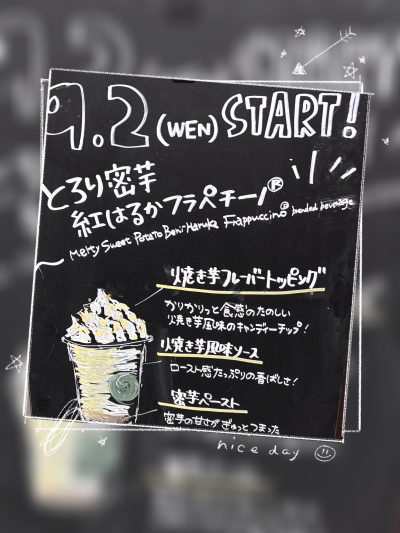 9.2 (WEN) START!
とろり密芋
紅はるかフラペチーノ®
Melty Sweet Potato Beni Haruka Frappuccino® blended beverage
焼き芋フレーバートッピング
かりかりっと食感のたのしい
焼き芋風味のキャンディーチップ!
焼き芋風味ソース
ロースト感たっぷりの香ばしさ!
密芋ペースト
密芋の甘さがぎゅっとつまった
nice day